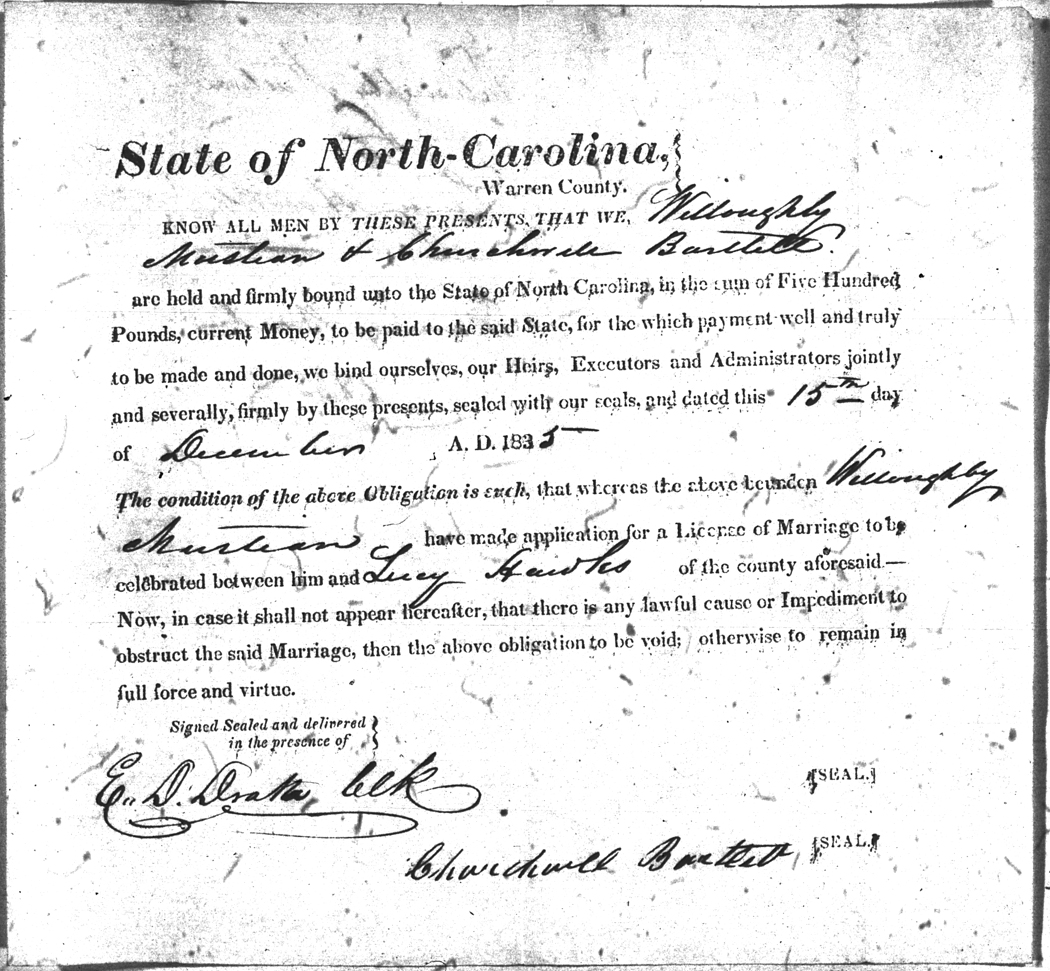 State of North-Carolina,
Warren County.
KNOW ALL MEN BY THESE PRESENTS, THAT WE, Willoughby
Mustian & Churchwell Bartlett.
are held and firmly bound unto the State of North Carolina, in the sum of Five Hundred
Pounds, current Money, to be paid to the said State, for the which payment well and truly
to be made and done, we bind ourselves, our Heirs, Executors and Administrators jointly
and severally, firmly by these presents, sealed with our seals, and dated this 15th day
of December, A. D. 1835
The condition of the above Obligation is such, that whereas the above bounden Willoughby
Mustian have made application for a License of Marriage to be
celebrated between him and Lucy Hawks of the county aforesaid—
Now, in case it shall not appear hereafter, that there is any lawful cause or Impediment to
obstruct the said Marriage, then the above obligation to be void; otherwise to remain in
full force and virtue.
Signed Sealed and delivered
in the presence of
E. D. Drake Clk
[SEAL.]
Churchwell Bartlett [SEAL.]